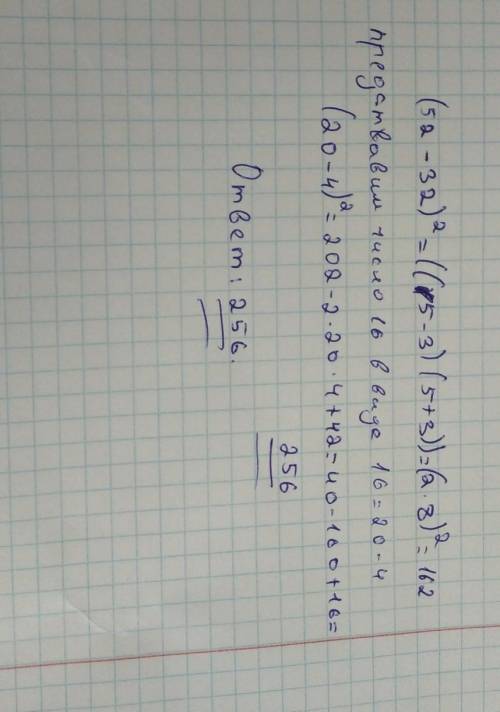 (52 - 32)² = ((5 - 3) (5 + 3)) = (2 · 8)² = 162
предствавим число 16 в виде 16 = 20 - 4
(20 - 4)² = 202 - 2 · 20 · 4 + 42 = 40 - 160 + 16 =
256
Ответ: 256.